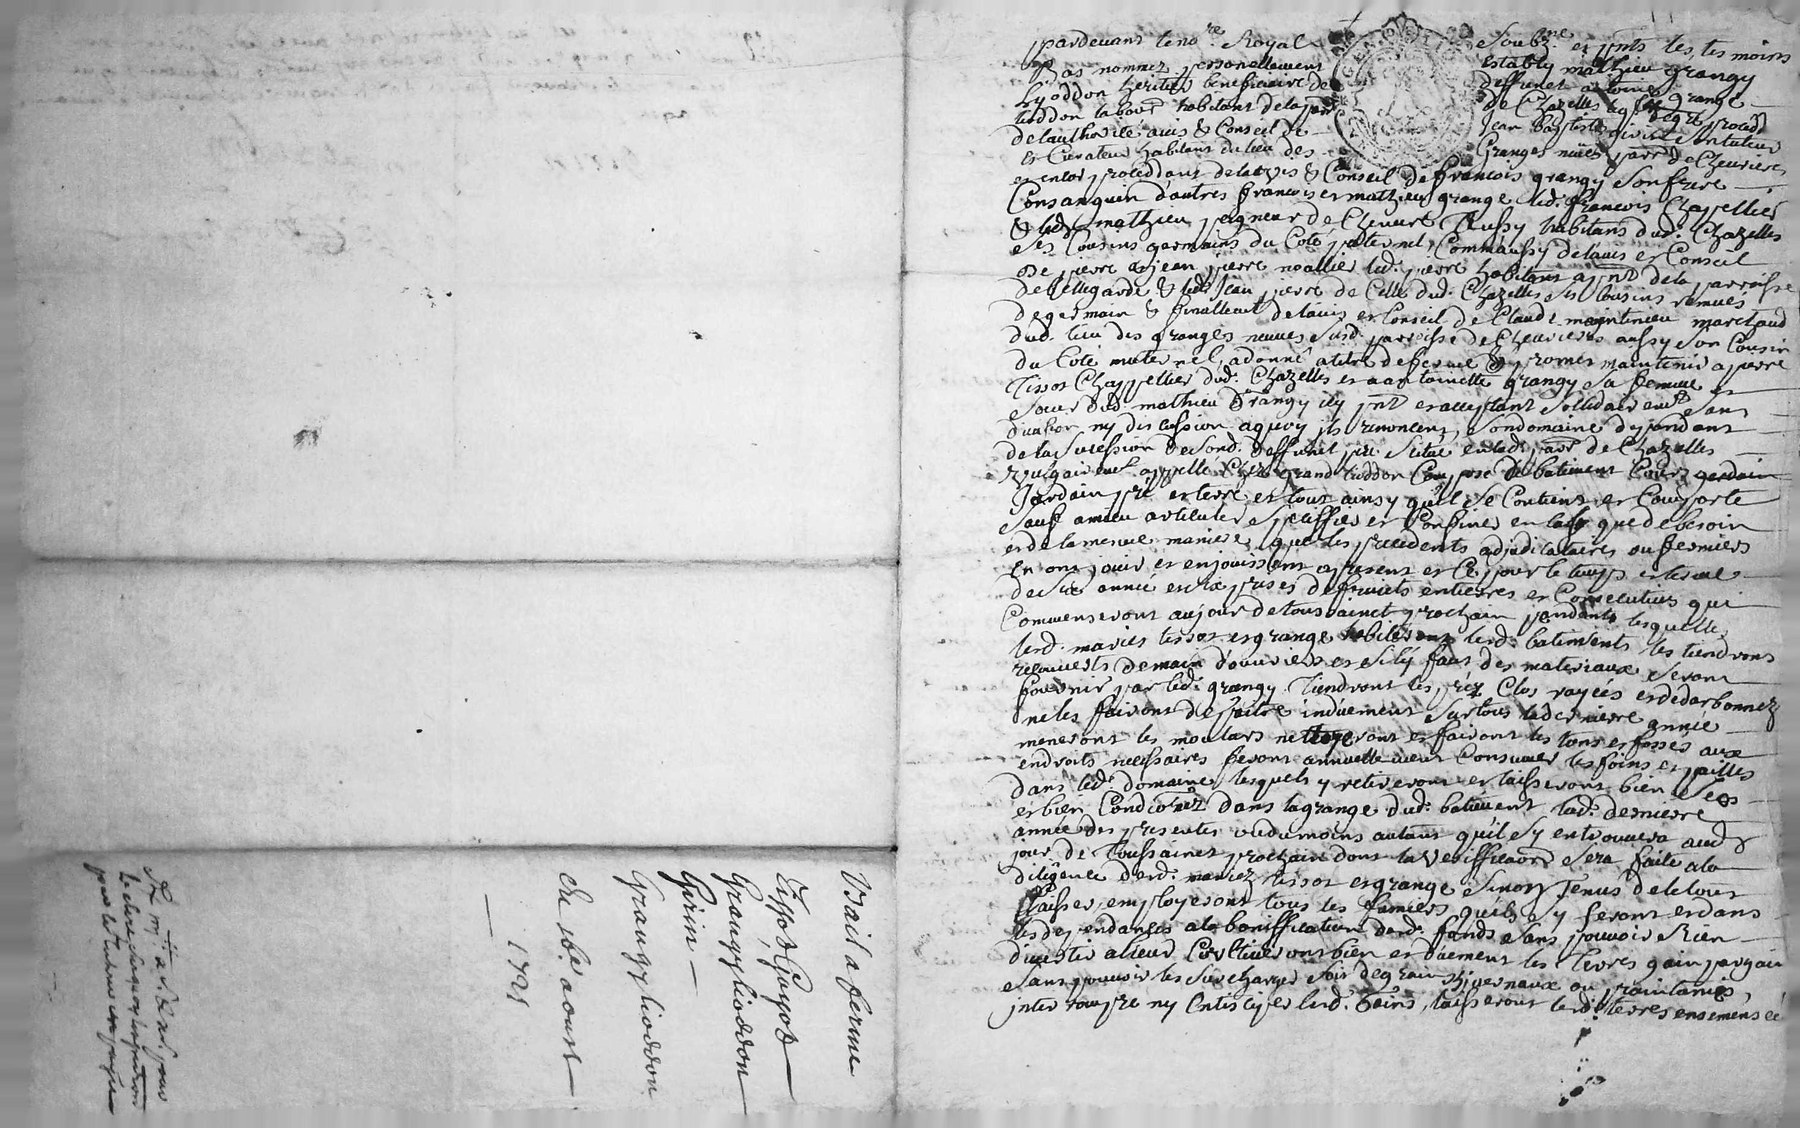 pardevant le no.re Royal soubz.né et pnts les tesmoins
Bas nommez personnellement estably mathieu grangy
lyoddon heritier beneficiaire de deffunct antoine grange
lioddon labour habitant de la parr de Chazelles
de lauthorité avis & Conseil de Jean Baptiste son tuteur
et Curateur habitant du lieu des Granges neuves parr de Chevrieres
et encor proceddant de lavis & Conseil de francois grangy son frere
Consanguin d'autres francois et mathieu grange led. francois Chapellier
& led. mathieu peigneur de Chenvre Aussy habitans dud. Chazelles
ses Cousins germains du Coté paternel, Comm'aussy de lavis et Conseil
de pierre & jean pierre noallier led. pierre habitant a pnt de la parroisse
de bellegarde & led. Jean pierre de Celle dud. Chazelles ses Cousins remués
de germain & finallemt de lavis et Conseil de Claude maintineu marchand
dud. lieu des granges neuves susd. parroisse de Chevrieres aussy son Cousin
du Coté maternel, a donné a titre de ferme & promet maintenir a pierre
Tissot Chappellier dud. Chazelles et a antoinette grangy sa femme et
soeur dud. mathieu Grangy icy pnt et acceptant sollidairemt sans
division ny discussion a quoy ils renoncent, son domaine dependant
de la succession de sond. deffunct pere scitué en lad. parr de Chazelles
vulgairemt appellé Chez grand lioddon Composé de batiment Cour, gerdain
Jardain pré et terre et tout ainsy qu'il se Contient et Comporte
sauf a mieu articuler speciffier et Confiner en cas que de besoin
et de la mesme maniere que les precedents adjudicataires ou fermiers
en ont joüir et en jouissent a present et Ce pour le temps et terme
de six année et six prises de fruicts entierres et Consecutives qui
Commenseront au jour de toussainct prochain pendants lesquelle
lesd. mariés tissot et grange habiteront lesd. batiments les tiendront
recouverts de main d'ouvriers et s'il y faut des materiaux seront
fournir par led. grangy. Tiendront les préz Clos rayées et dedarbonnez
ne les fairont despaitre induement sur tous la derniere annie
meneront les moulars nettoyeront et fairont les tons et fosses aux
endroits necessaires feront annuellement Consumer les foins et pailles
dans led. domaine lesquels y retireront et laisseront bien secs
et bien Condiorné dans la grange dud. batiment lad. derniere
année des presentes ou du moins autant qu'il s'y en trouvera aud.
jour de Toussainct prochain dont la veriffication sera faite a la
diligence desd. mariez tissot et grange sinon Tenus de le tout
laisser, employeront tous les fumiers qu'ils s'y feront et dans
les dependances a la boniffication desd. fonds sans pouvoir Rien
divertir alieur Cultiveront bien et duement les Terres gain par gain
sans pouvoir les surcharger soit de grain hivernaux ou praintanies,
interrompre ny Anticiper lesd. Gains, laisseront lesd. terres ensemensé
Bail a ferme
Tissot Guyot
Grangy lioddon
Girin
Grangy lioddon
Du 16e aoust
1725